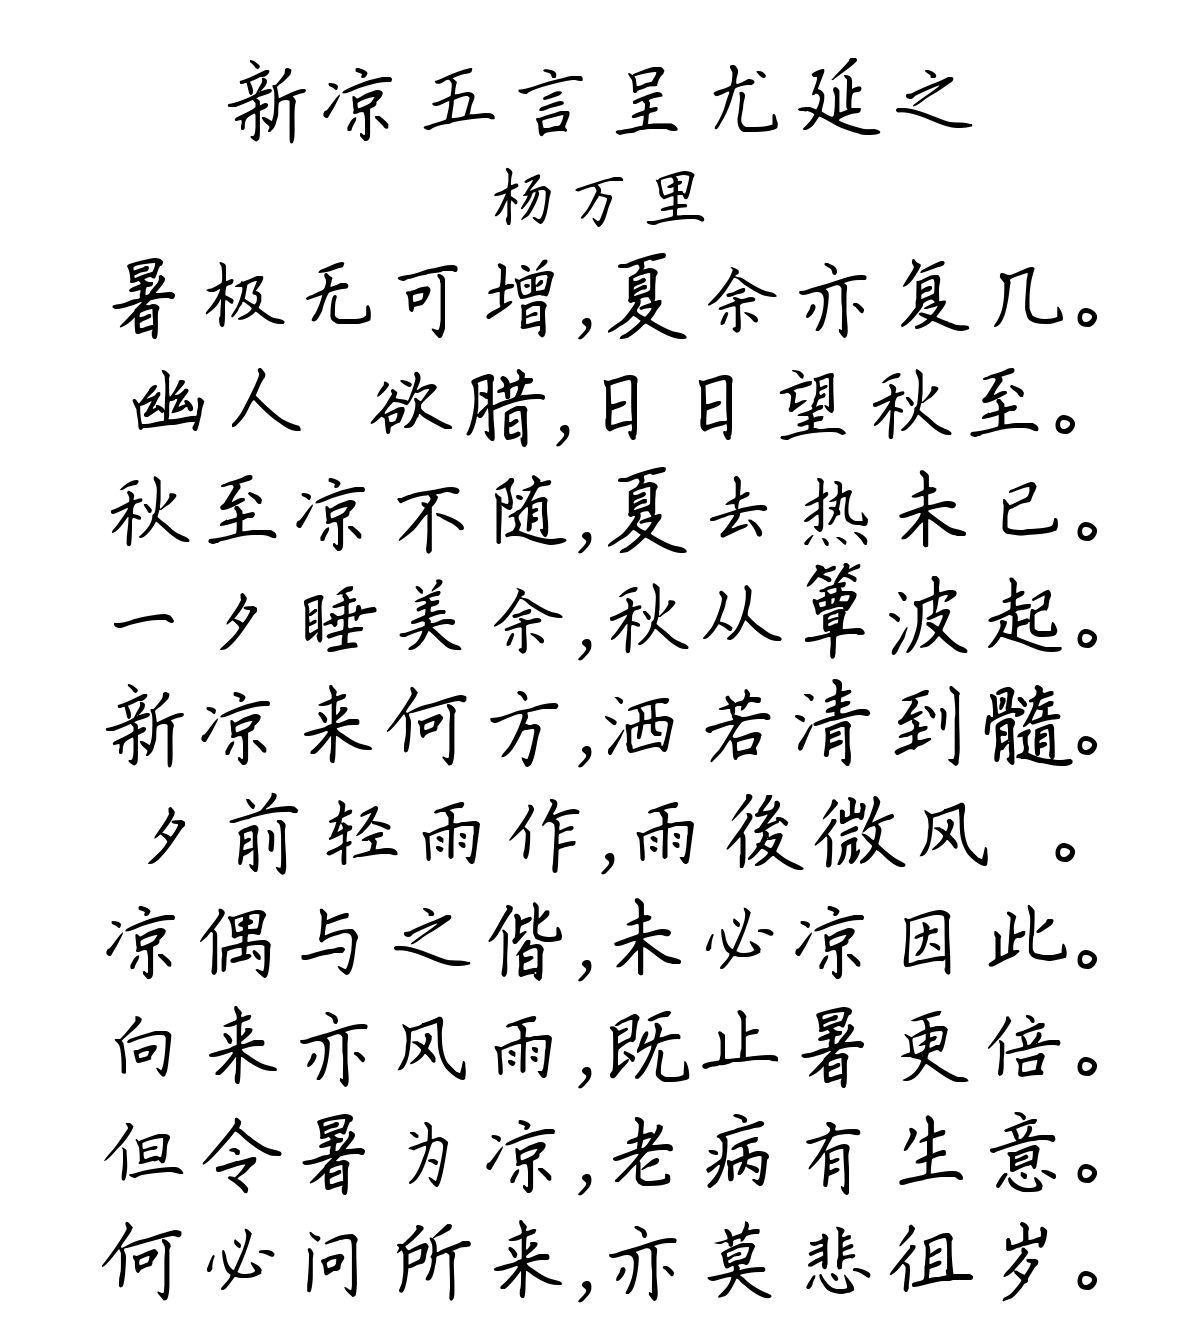 新凉五言呈尤延之
杨万里
暑极无可增,夏余亦复几。
幽人 欲腊,日日望秋至。
秋至凉不随,夏去热未已。
一夕睡美余,秋从簟波起。
新凉来何方,洒若清到髓。
夕前轻雨作,雨後微风 。
凉偶与之偕,未必凉因此。
向来亦风雨,既止暑更倍。
但令暑为凉,老病有生意。
何必问所来,亦莫悲徂岁。